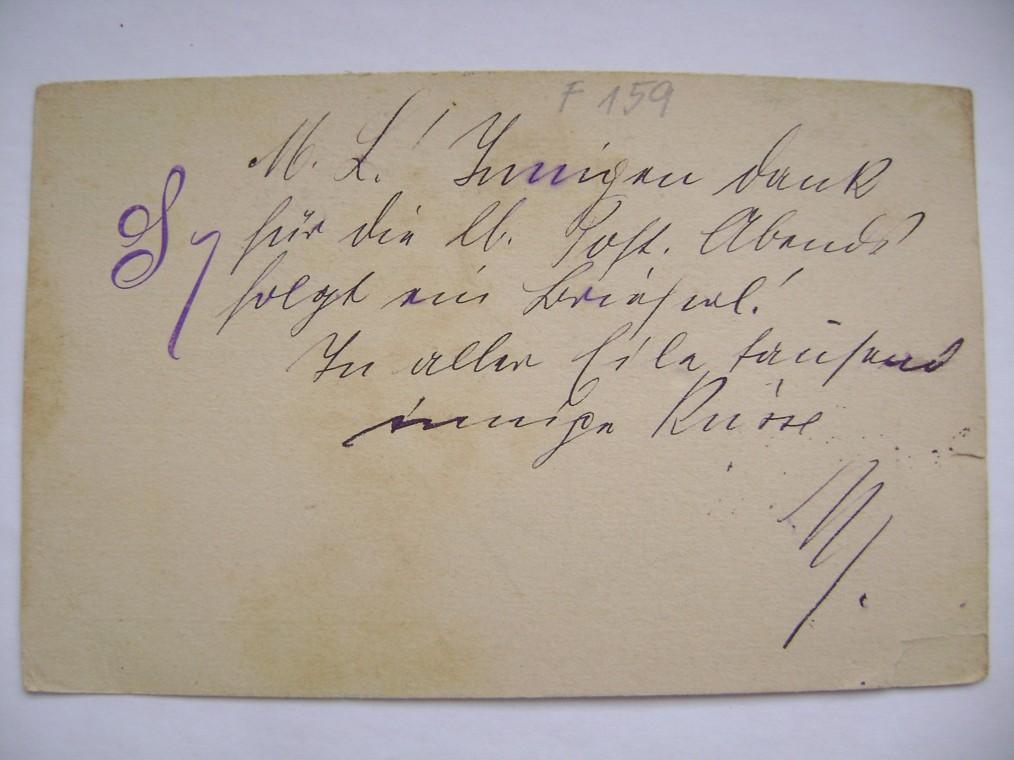 F 159
M. L.! Innigen Dank
für die lb. Post. Abends
folgt ein Brieferl!
In aller Eile tausend
innige Küsse
M.